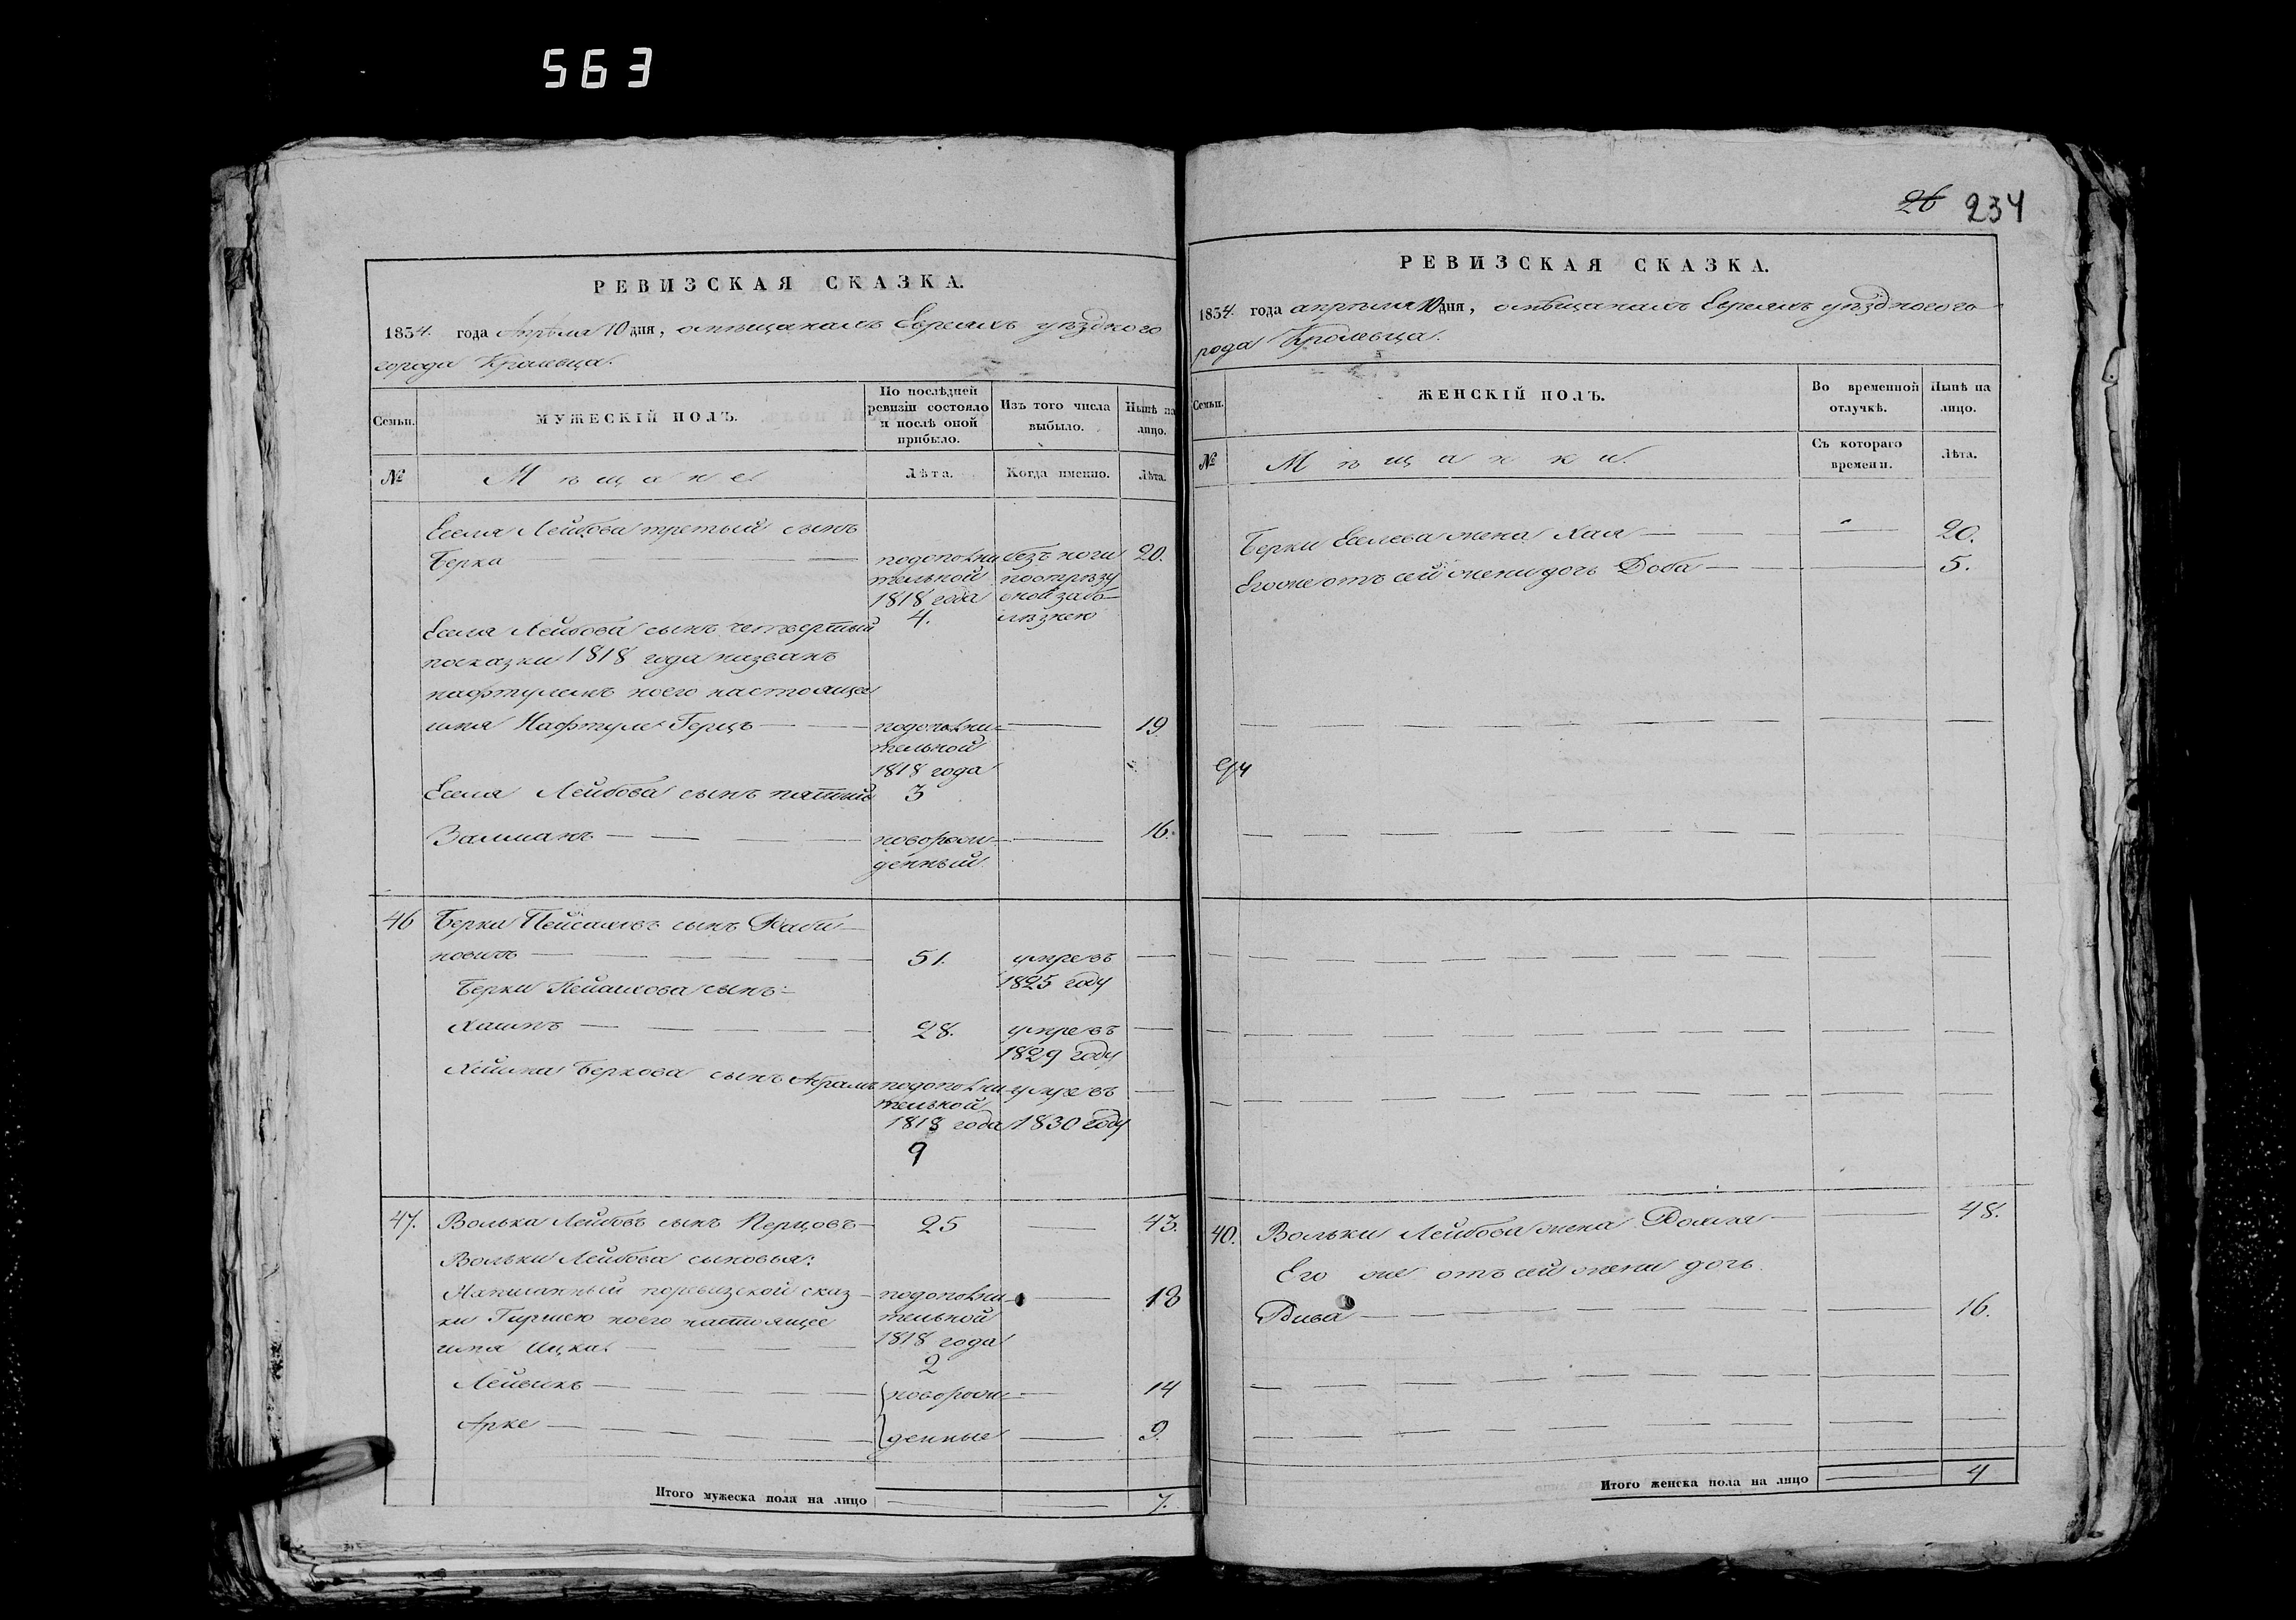 563
РЕВИЗСКАЯ СКАЗКА.
1834. года Апрѣля 10 дня, о мѣщанахъ Евреяхъ уѣзднаго
города Кролевца.
Семьи.
МУЖЕСКІЙ ПОЛЪ.
По послѣдней ревизіи состояло и послѣ оной прибыло.
Изъ того числа выбыло.
Нынѣ на лицо.
№
Мѣщане
Лѣта.
Когда именно.
Лѣта.
Еселя Лейбова третьій сынъ
Берка — подополни безъ ноги 20.
тельной поотрѣзу
1818 года оной забо-
4. лѣзнею
Еселя Лейбова сынъ четвертый
посказки 1818 года названъ
нафтулемъ коего настоящее
имя Нафтуле Герцъ — подополни- — 19
тельной
1818 года
Еселя Лейбова сынъ пятый 3
Залманъ — новорож- — 16.
денный
46 Берка Пейсаховъ сынъ Раби-
новичъ — 51. умре въ —
1825 году
Берки Пейсахова сынъ:
Хаимъ — 28. умре въ —
1829 году
Хаима Беркова сынъ Абрамъ подополни умре въ —
тельной
1818 года 1830 году
9
47. Волька Лейбовъ сынъ Перцовъ — 25 — 43.
Вольки Лейбова сыновья:
Написанный поревизской сказ- подополни- — 18
ки Гиршею коего настоящее тельной
имя Ицка. — 1818 года
2
Лейвикъ — новорож- — 14
Арке — денные — 9.
Итого мужеска пола на лицо — 7.
26 234
РЕВИЗСКАЯ СКАЗКА.
1834. года апрѣля 10 дня, о мѣщанахъ Евреяхъ уѣзднаго го-
рода Кролевца.
Семьи.
ЖЕНСКІЙ ПОЛЪ.
Во временной отлучкѣ.
Нынѣ на лицо.
№
Мѣщанки.
Съ котораго времени.
Лѣта.
Берки Еселева жена Хая — 20.
Егоже отъ сей жены дочь Доба — 5.
40. Вольки Лейбова жена — 48.
Его же отъ сей жены дочь
— 16.
Итого женска пола на лицо — 4